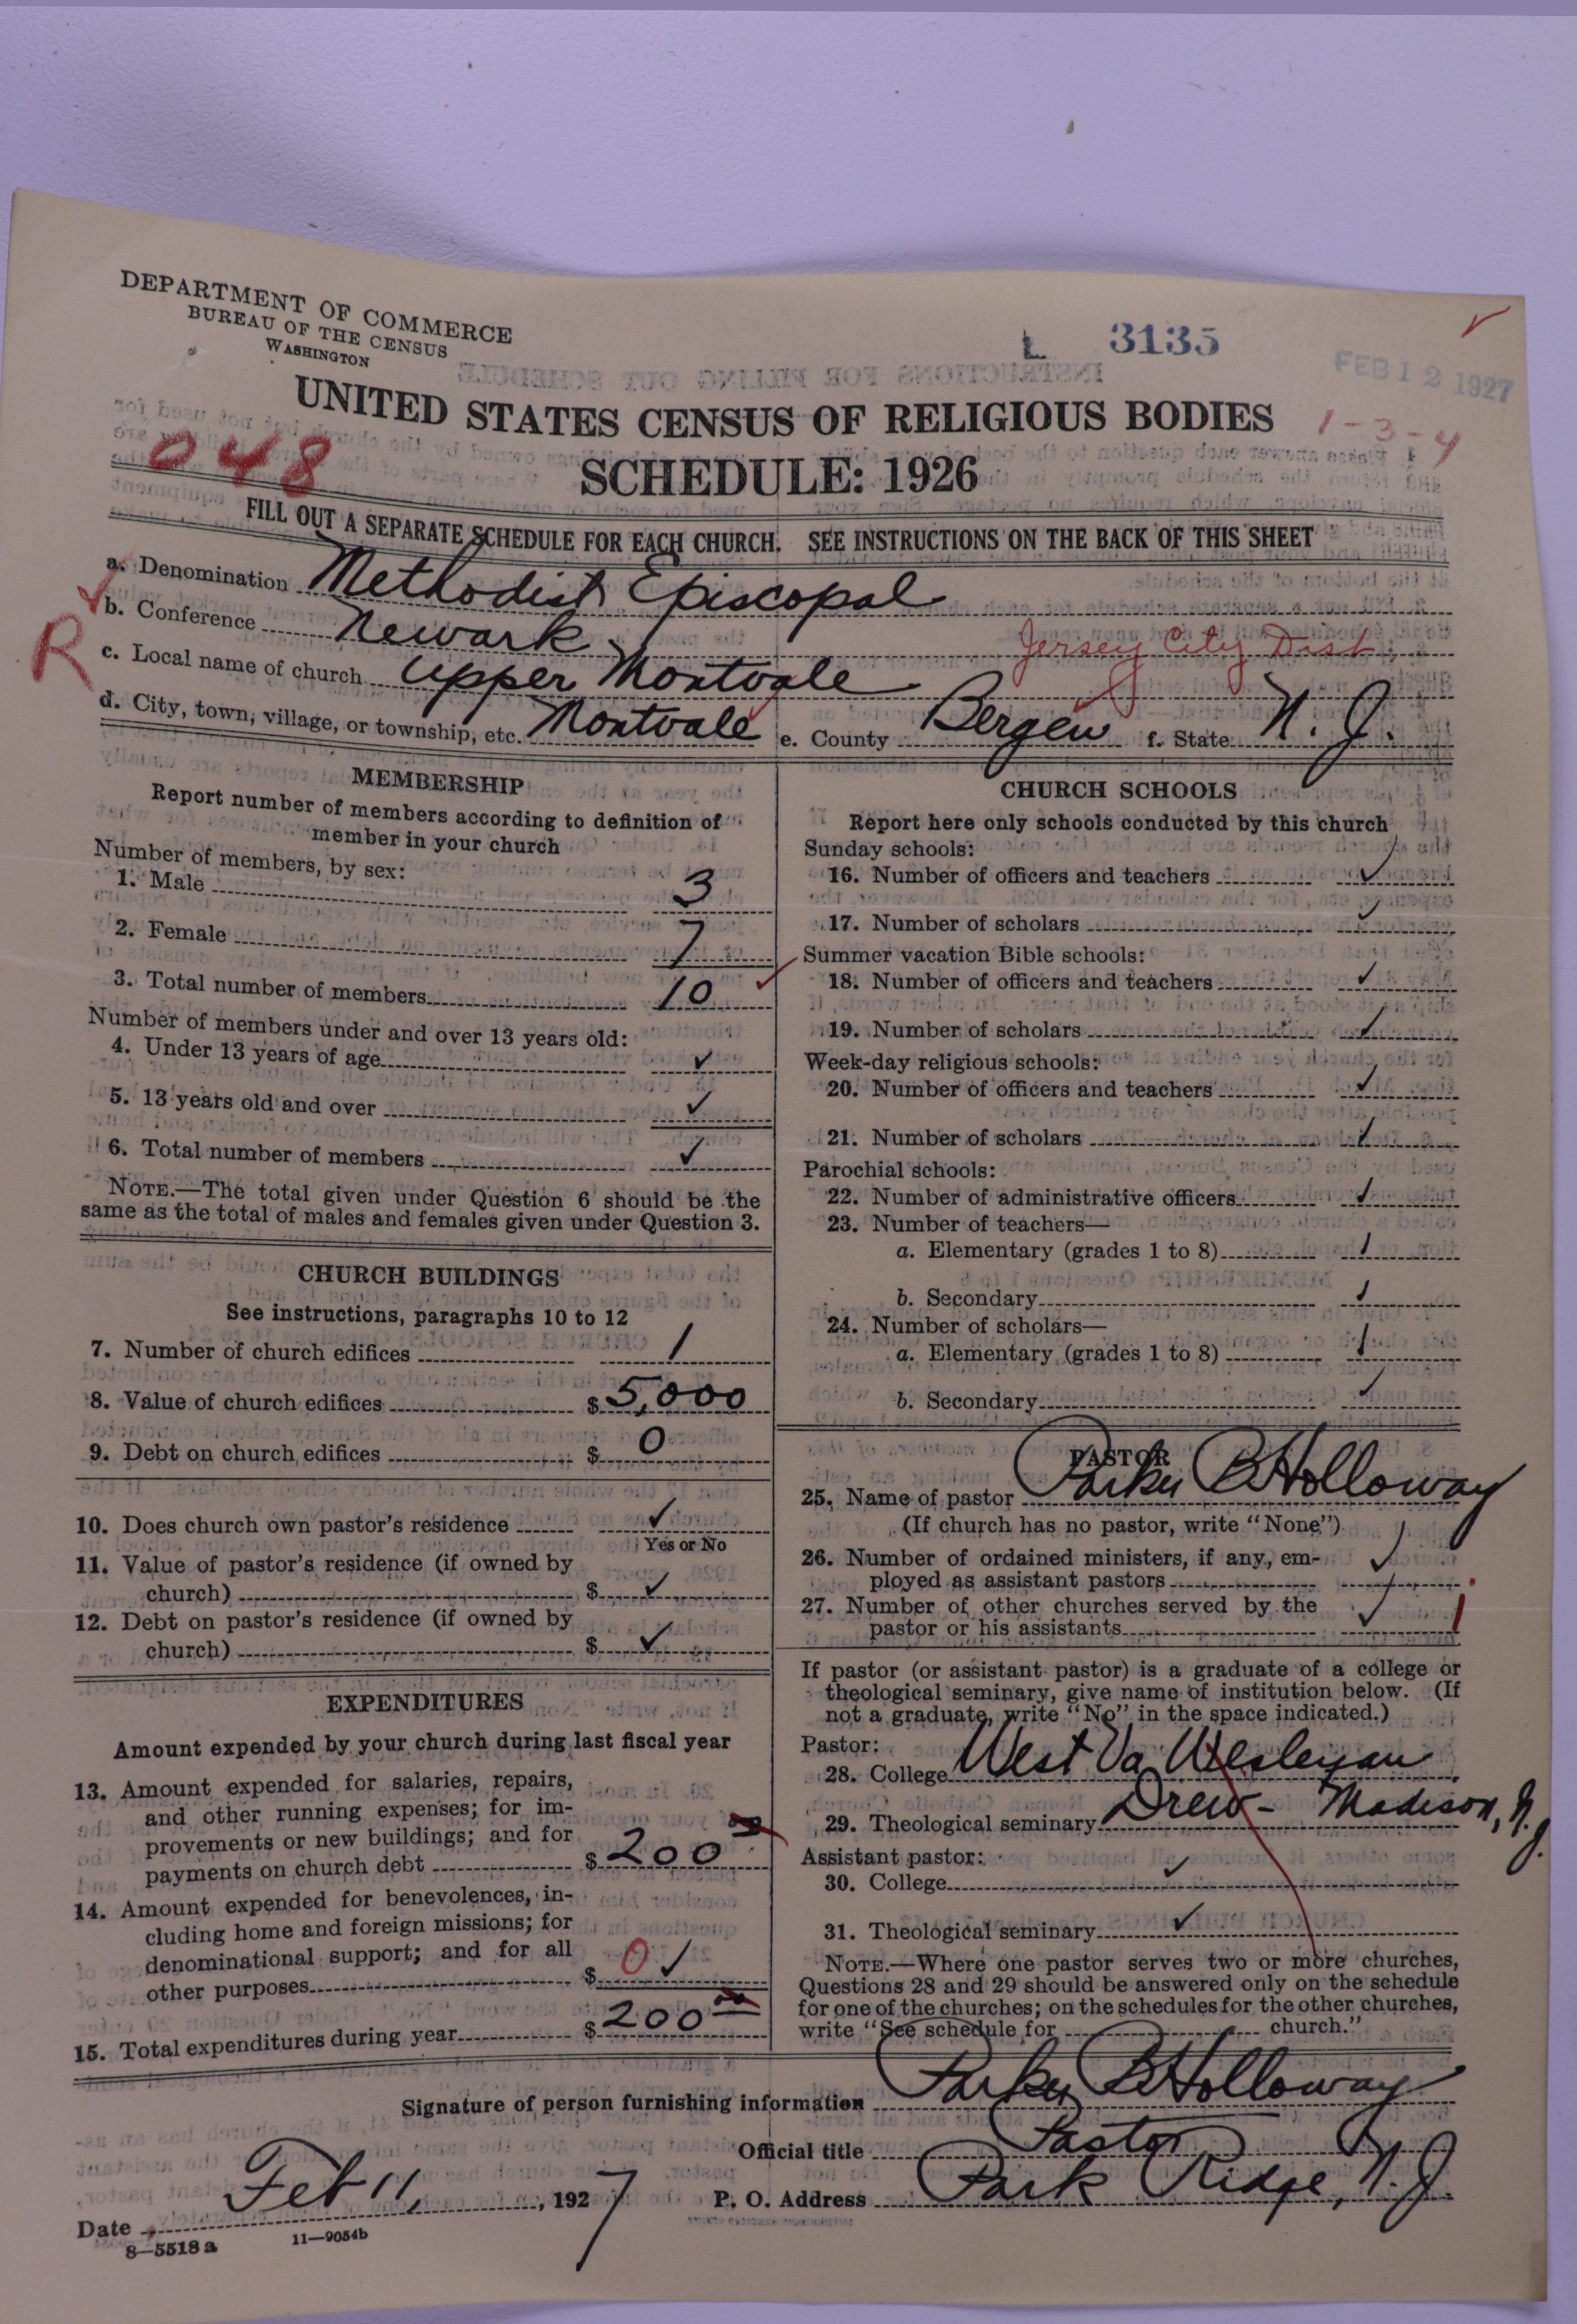 DEPARTMENT OF COMMERCE
BUREAU OF THE CENSUS
WASHINGTON
L 3135
FEB 12 1927
UNITED STATES CENSUS OF RELIGIOUS BODIES
1-3-4
048
SCHEDULE: 1926
FILL OUT A SEPARATE SCHEDULE FOR EACH CHURCH. SEE INSTRUCTIONS ON THE BACK OF THIS SHEET
a. Denomination Methodist Episcopal
b. Conference Newark
Jersey City Dist.
R
c. Local name of church Upper Montvale
d. City, town, village, or township, etc. Montvale e. County Bergen f. State N. J.
MEMBERSHIP
Report number of members according to definition of
member in your church
Number of members, by sex:
1. Male 3
2. Female 7
3. Total number of members 10 ✓
Number of members under and over 13 years old:
4. Under 13 years of age ✓
5. 13 years old and over ✓
6. Total number of members ✓
NOTE.—The total given under Question 6 should be the
same as the total of males and females given under Question 3.
CHURCH BUILDINGS
See instructions, paragraphs 10 to 12
7. Number of church edifices 1
8. Value of church edifices $ 5,000
9. Debt on church edifices $ 0
10. Does church own pastor's residence ✓
Yes or No
11. Value of pastor's residence (if owned by
church) $ ✓
12. Debt on pastor's residence (if owned by
church) $ ✓
EXPENDITURES
Amount expended by your church during last fiscal year
13. Amount expended for salaries, repairs,
and other running expenses; for im-
provements or new buildings; and for
payments on church debt $ 200 00
14. Amount expended for benevolences, in-
cluding home and foreign missions; for
denominational support; and for all
other purposes $ 0 ✓
15. Total expenditures during year $ 200 00
CHURCH SCHOOLS
Report here only schools conducted by this church
Sunday schools:
16. Number of officers and teachers ✓
17. Number of scholars ✓
Summer vacation Bible schools:
18. Number of officers and teachers ✓
19. Number of scholars ✓
Week-day religious schools:
20. Number of officers and teachers ✓
21. Number of scholars ✓
Parochial schools:
22. Number of administrative officers ✓
23. Number of teachers—
a. Elementary (grades 1 to 8) ✓
b. Secondary ✓
24. Number of scholars—
a. Elementary (grades 1 to 8) ✓
b. Secondary ✓
PASTOR
25. Name of pastor Parker B Holloway
(If church has no pastor, write "None")
26. Number of ordained ministers, if any, em-
ployed as assistant pastors ✓
27. Number of other churches served by the
pastor or his assistants ✓ 1
If pastor (or assistant pastor) is a graduate of a college or
theological seminary, give name of institution below. (If
not a graduate, write "No" in the space indicated.)
Pastor:
28. College West Va Wesleyan
29. Theological seminary Drew - Madison, N. J.
Assistant pastor:
30. College ✓
31. Theological seminary ✓
NOTE.—Where one pastor serves two or more churches,
Questions 28 and 29 should be answered only on the schedule
for one of the churches; on the schedules for the other churches,
write "See schedule for ---------- church."
Signature of person furnishing information Parker B Holloway
Official title Pastor
Date Feb 11, 1927 P. O. Address Park Ridge, N. J.
8—5518 a 11—9054b